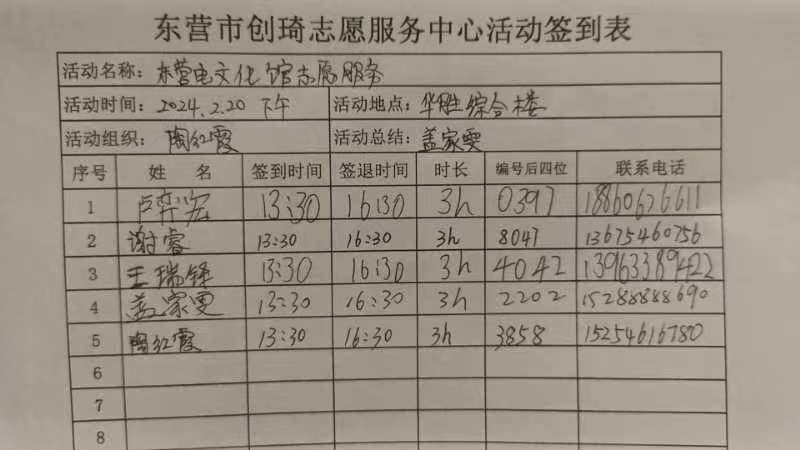 东营市创琦志愿服务中心活动签到表
活动名称：东营电文化馆志愿服务
活动时间：2024.2.20 下午 活动地点：华胜综合楼
活动组织：陶红霞 活动总结：盖家雯
序号 姓 名 签到时间 签退时间 时长 编号后四位 联系电话
1 卢弈宏 13:30 16:30 3h 0397 18860676611
2 谢睿 13:30 16:30 3h 8047 13675460756
3 王瑞锋 13:30 16:30 3h 4042 13963389422
4 盖家雯 13:30 16:30 3h 2202 15288888690
5 陶红霞 13:30 16:30 3h 3858 15254616780
6
7
8